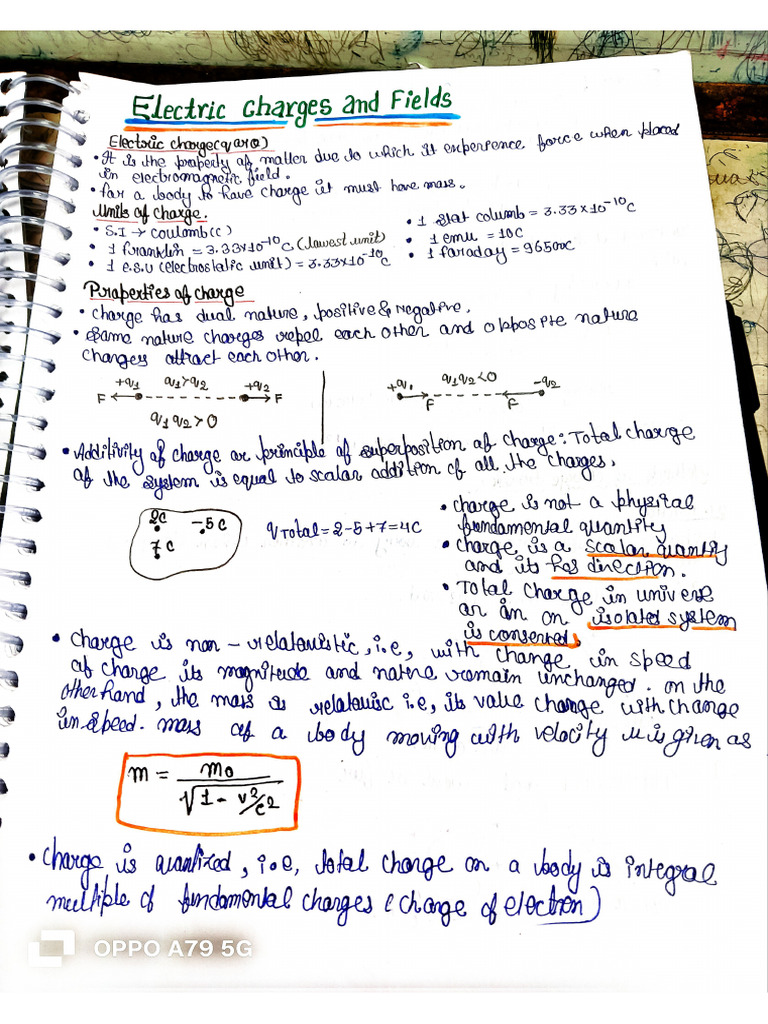 Electric Charges and Fields
Electric charge(q or Q)
• It is the property of matter due to which it experience force when placed
in electromagnetic field.
• for a body to have charge it must have mass.
Units of charge.
• S.I → coulomb(c)
• 1 franklin = 3.33x10⁻¹⁰C (lowest unit)
• 1 e.s.u (electrostatic unit) = 3.33x10⁻¹⁰C
• 1 stat columb = 3.33x10⁻¹⁰C
• 1 emu = 10C
• 1 faraday = 96500C
Properties of charge
• charge has dual nature, positive & Negative.
• Same nature charges repel each other and opposite nature
charges attract each other.
+q1 q1>q2 +q2
F F
q1 q2 > 0
+q1 q1q2<0 -q2
F F
• Additivity of charge or principle of superposition of charge: Total charge
of the system is equal to scalar addition of all the charges.
2C -5C
7C
qTotal = 2-5+7=4C
• charge is not a physical
fundamental quantity
• charge is a scalar quantity
and its has direction.
• Total charge in universe
or in an isolated system
is conserved.
• charge is non-relativistic, i.e, with change in speed
of charge its magnitude and nature remain unchanged. on the
other hand, the mass is relativic i.e, its value change with change
in speed. mass of a body moving with velocity u is given as
m = m0 / √1 - v²/c²
• charge is quantized, i.e, total charge on a body is integral
multiple of fundamental charges (charge of electron)
OPPO A79 5G